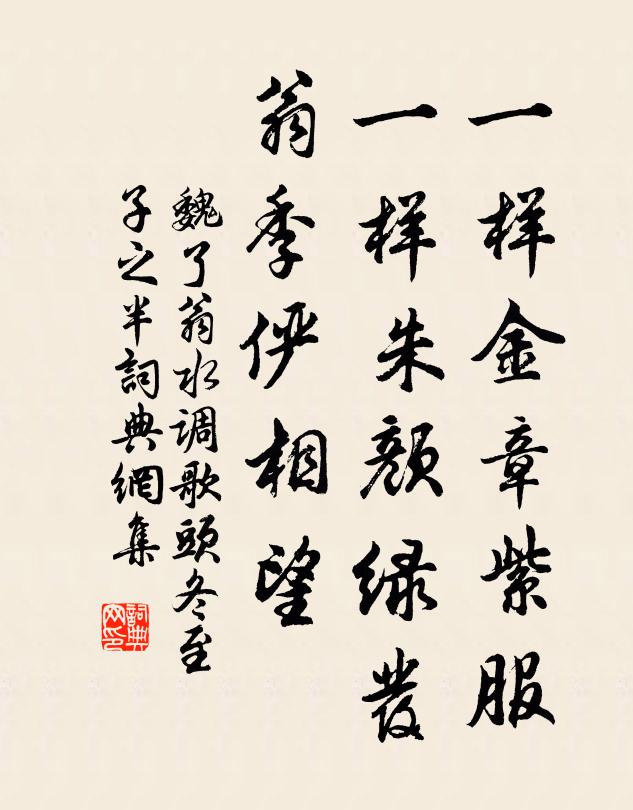 一样金章紫服
一样朱颜绿發
翁季俨相望
魏了翁水调歌頭冬至
子之半詞典網集
詞典网印